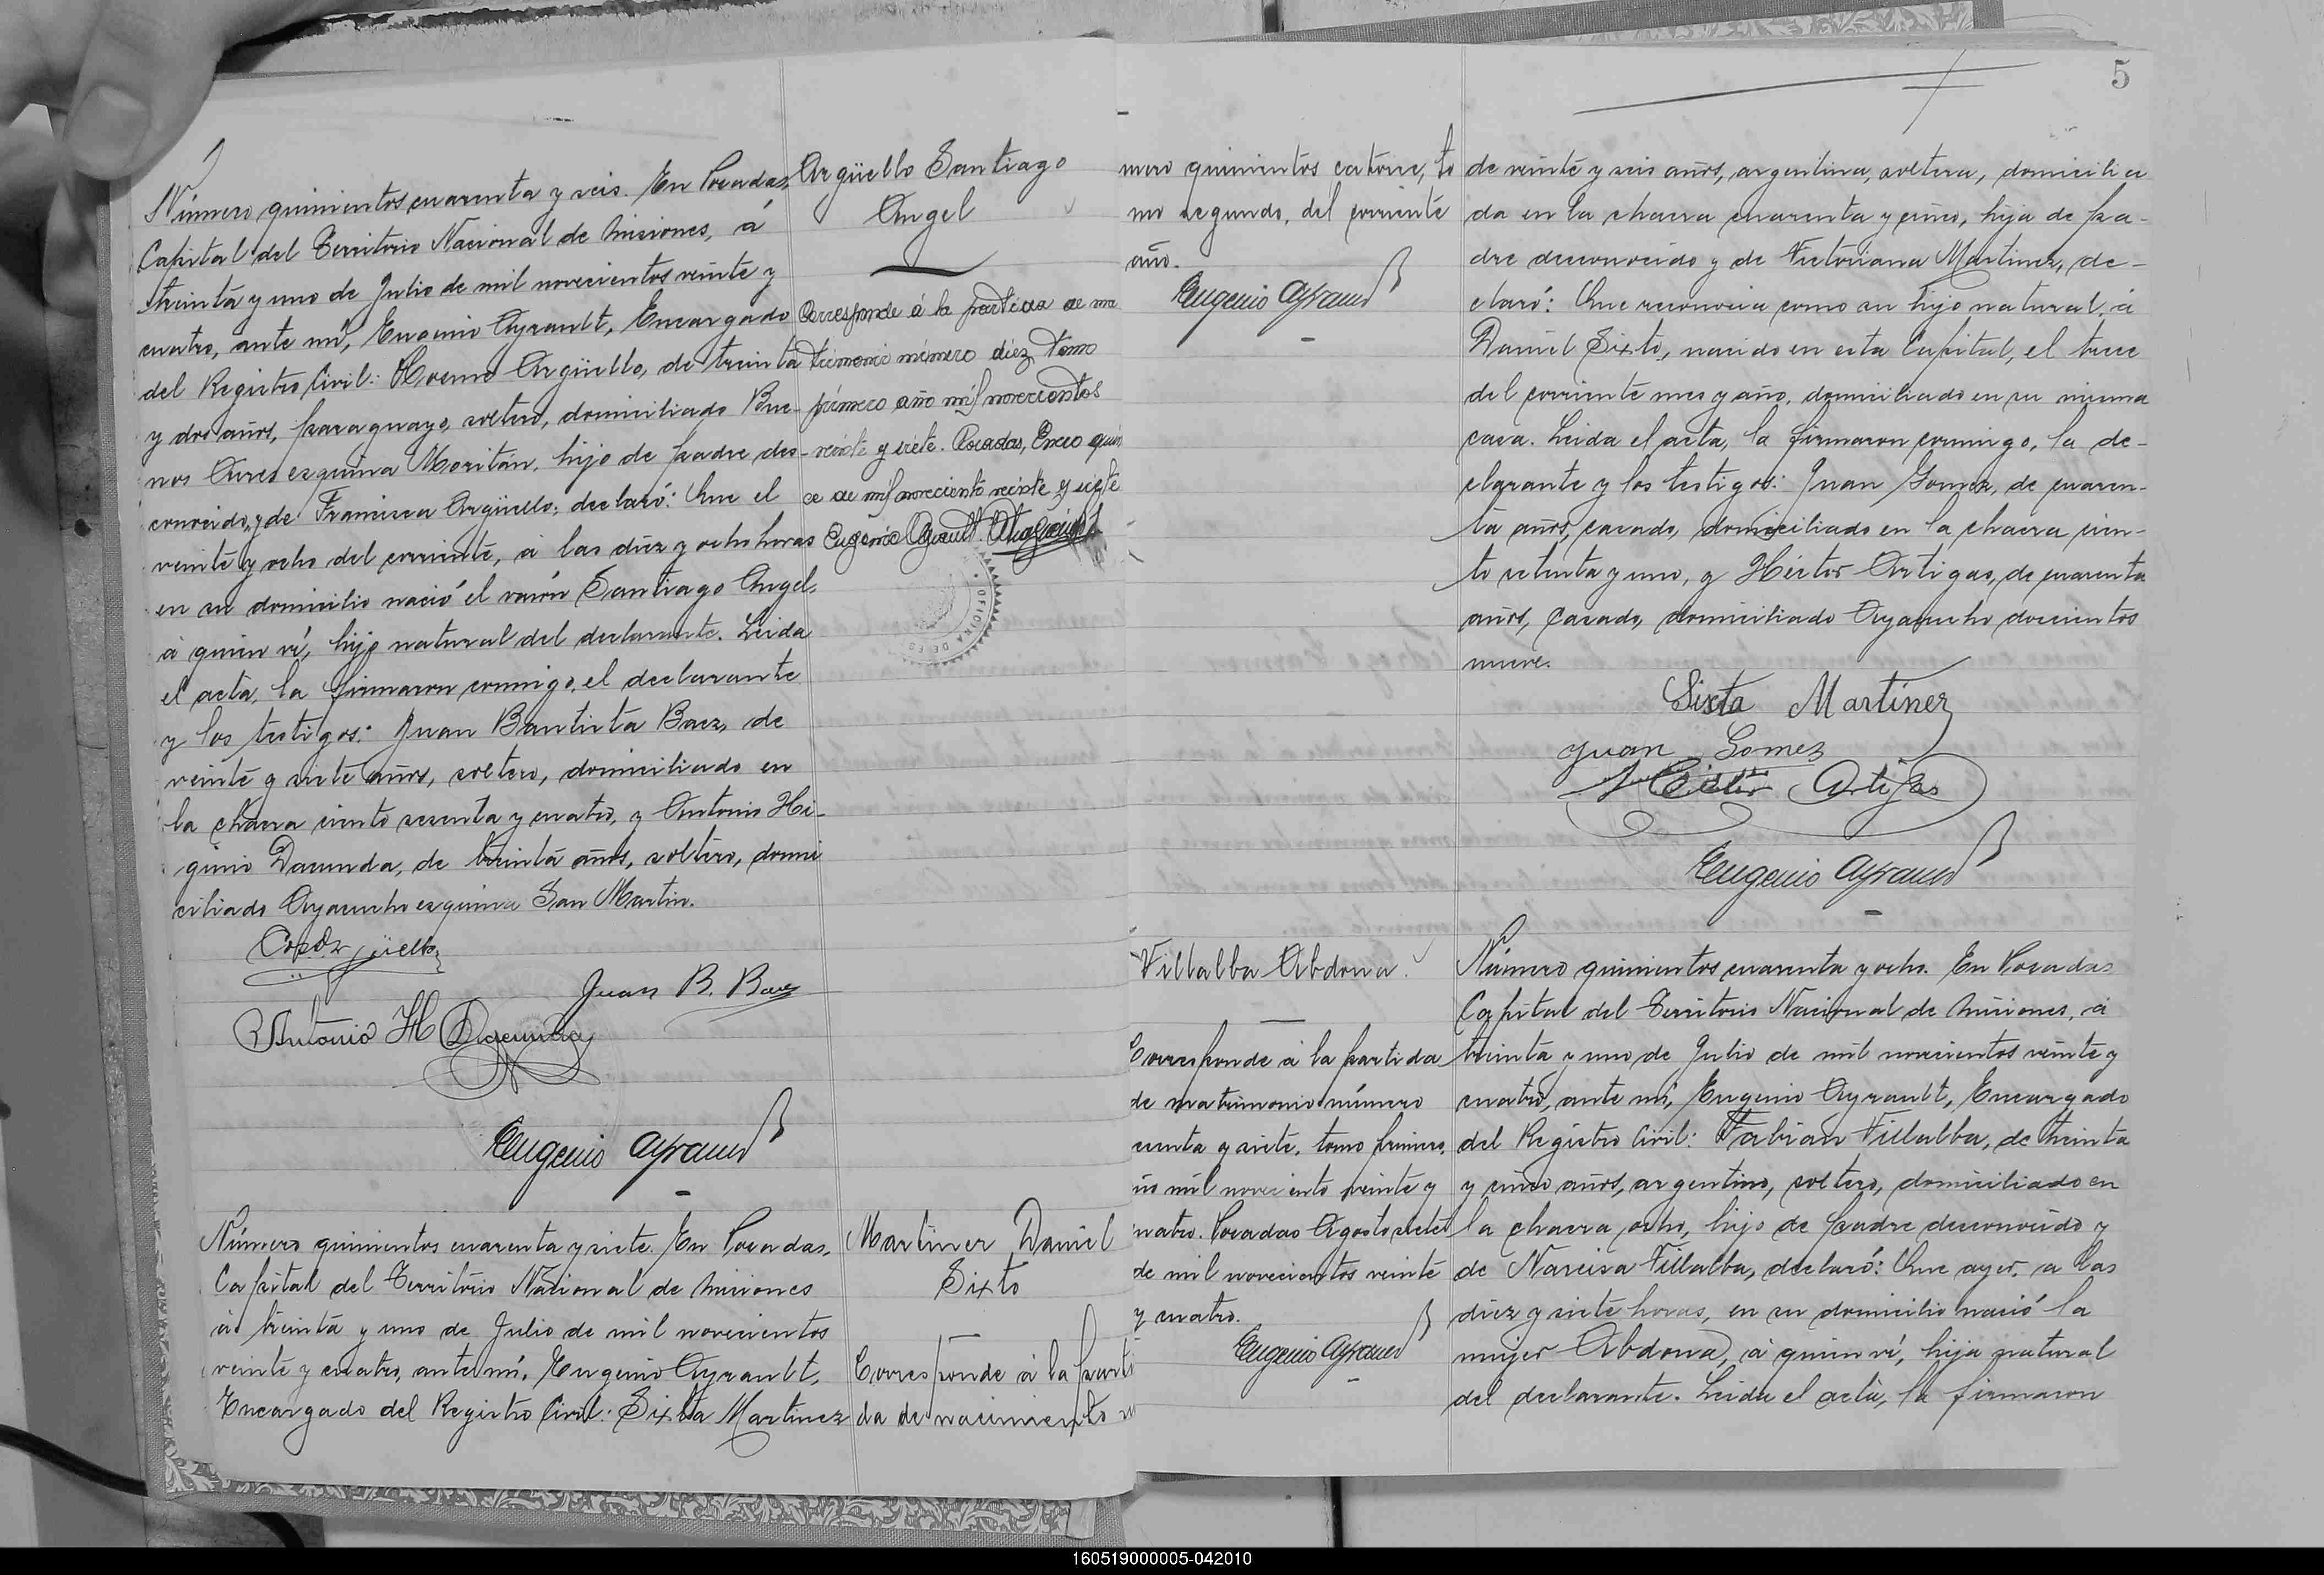 Número quinientos cuarenta y seis. En Posadas,
Capital del Territorio Nacional de Misiones, á
treinta y uno de Julio de mil novecientos veinte y
cuatro, ante mí, Eugenio Ayrault, Encargado
del Registro Civil: Argüello, de treinta
y dos años, paraguayo, soltero, domiciliado Bue-
nos Aires esquina Moritán, hijo de padre des-
conocido, y de Francisca Argüello; declaró: Que el
veinte y ocho del corriente, á las diez y ocho horas
en su domicilio nació el varón Santiago Angel,
á quien ví, hijo natural del declarante. Leida
el acta, la firmaron conmigo, el declarante
y los testigos: Juan Bautista Baez, de
veinte y siete años, soltero, domiciliado en
la chacra ciento sesenta y cuatro, y Antonio Hi-
ginio Dacunda, de treinta años, soltero, domi
ciliado Ayacucho esquina San Martin.
Juan B. Baez
Antonio H Dacunda
Eugenio Ayrault
Argüello Santiago
Angel
Corresponde á la partida de ma
trimonio número diez, tomo
primero año mil novecientos
veinte y siete. Posadas, Enero quin
ce de mil novecientos veinte y siete
Eugenio Ayrault
OFICINA DE
Número quinientos cuarenta y siete. En Posadas,
Capital del Territorio Nacional de Misiones
á treinta y uno de Julio de mil novecientos
veinte y cuatro, ante mí, Eugenio Ayrault,
Encargado del Registro Civil: Sixta Martinez
Martinez Daniel
Sixto
Corresponde á la parti
da de nacimiento nú
5
mero quinientos catorce, to
mo segundo, del corriente
año.
Eugenio Ayrault
de veinte y seis años, argentina, soltera, domicilia
da en la chacra cuarenta y cinco, hija de pa-
dre desconocido y de Victoriana Martinez, de-
claró: Que reconocia como su hijo natural, á
Daniel Sixto, nacido en esta Capital, el trece
del corriente mes y año, domiciliado en su misma
casa. Leida el acta, la firmaron conmigo, la de-
clarante y los testigos: Juan Gomez, de cuaren-
ta años, casado, domiciliado en la chacra cien-
to setenta y uno, y Héctor Artigas, de cuarenta
años, casado, domiciliado Ayacucho doscientos
nueve.
Sixta Martinez
Juan Gomez
Héctor Artigas
Eugenio Ayrault
Villalba Abdona.
Corresponde á la partida
de matrimonio número
y siete, tomo primero,
mil novecientos veinte y
cuatro. Posadas Agosto siete
de mil novecientos veinte
y cuatro.
Eugenio Ayrault
Número quinientos cuarenta y ocho. En Posadas
Capital del Territorio Nacional de Misiones, á
treinta y uno de Julio de mil novecientos veinte y
cuatro, ante mí, Eugenio Ayrault, Encargado
del Registro Civil: Fabian Villalba, de treinta
y cinco años, argentino, soltero, domiciliado en
la chacra ocho, hijo de padre desconocido y
de Narcisa Villalba, declaró: Que ayer, a las
diez y siete horas, en su domicilio nació la
mujer Abdona, á quien ví, hija natural
del declarante. Leida el acta, la firmaron
160519000005-042010